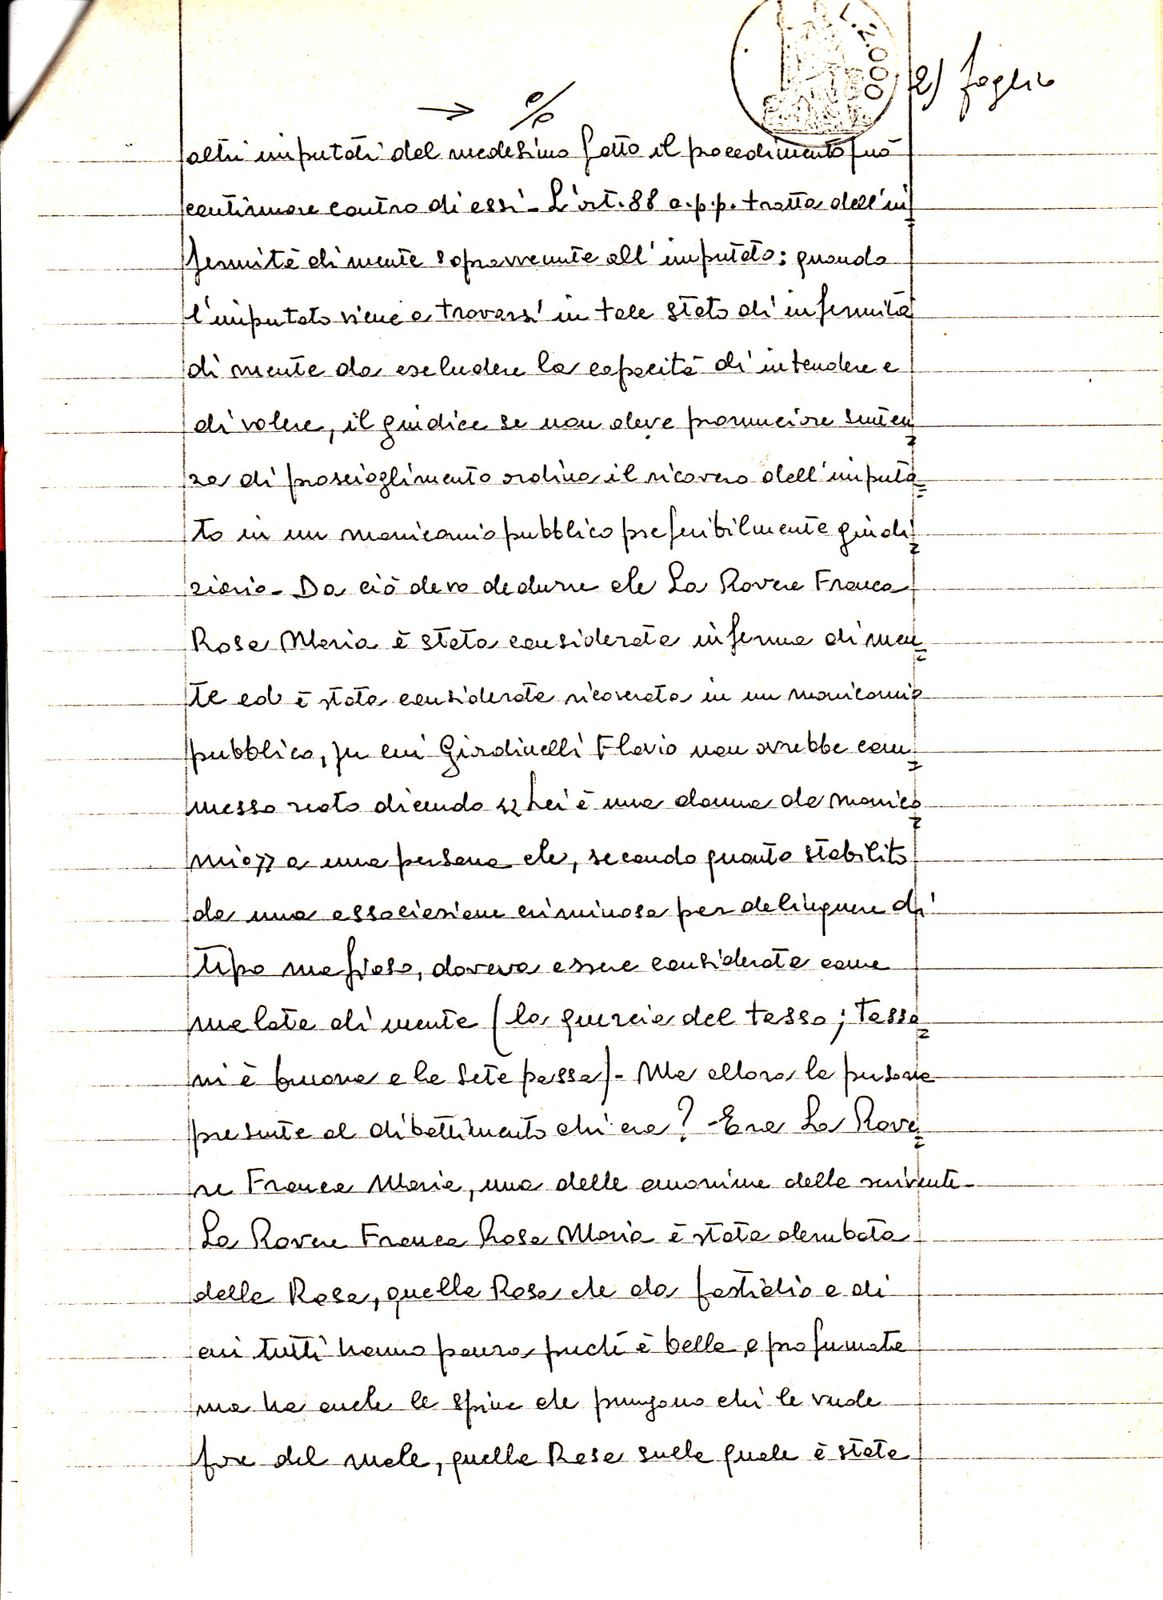 L.2.000
2) foglio
→ %
altri imputati del medesimo fatto il procedimento può
continuare contro di essi - L'art. 88 c.p.p. tratta dell'in
fermità di mente sopravvenuta all'imputato: quando
l'imputato viene a trovarsi in tale stato di infermità
di mente da escludere la capacità di intendere e
di volere, il giudice se non deve pronunciare senten
za di proscioglimento ordina il ricovero dell'imputa=
to in un manicomio pubblico preferibilmente giudi=
ziario - Da ciò devo dedurre che La Rovere Franca
Rosa Maria è stata considerata inferma di men=
te ed è stata considerata ricoverata in un manicomio
pubblico, per cui Giardinelli Flavio non avrebbe com=
messo reato dicendo << Lei è una donna da manico=
mio >> a una persona che, secondo quanto stabilito
da una associazione criminosa per delinquere di
tipo mafioso, doveva essere considerata come
malata di mente (la quercia del tasso; Tasso=
ni è buona e la sete passa) - Ma allora la persona
presente al dibattimento chi era? - Era La Rove=
re Franca Maria, una delle omonime della scrivente -
La Rovere Franca Rosa Maria è stata derubata
della Rosa, quella Rosa che da fastidio e di
cui tutti hanno paura perché è bella e profumata
ma ha anche le spine che pungono chi le vuole
fare del male, quella Rosa sulla quale è stata